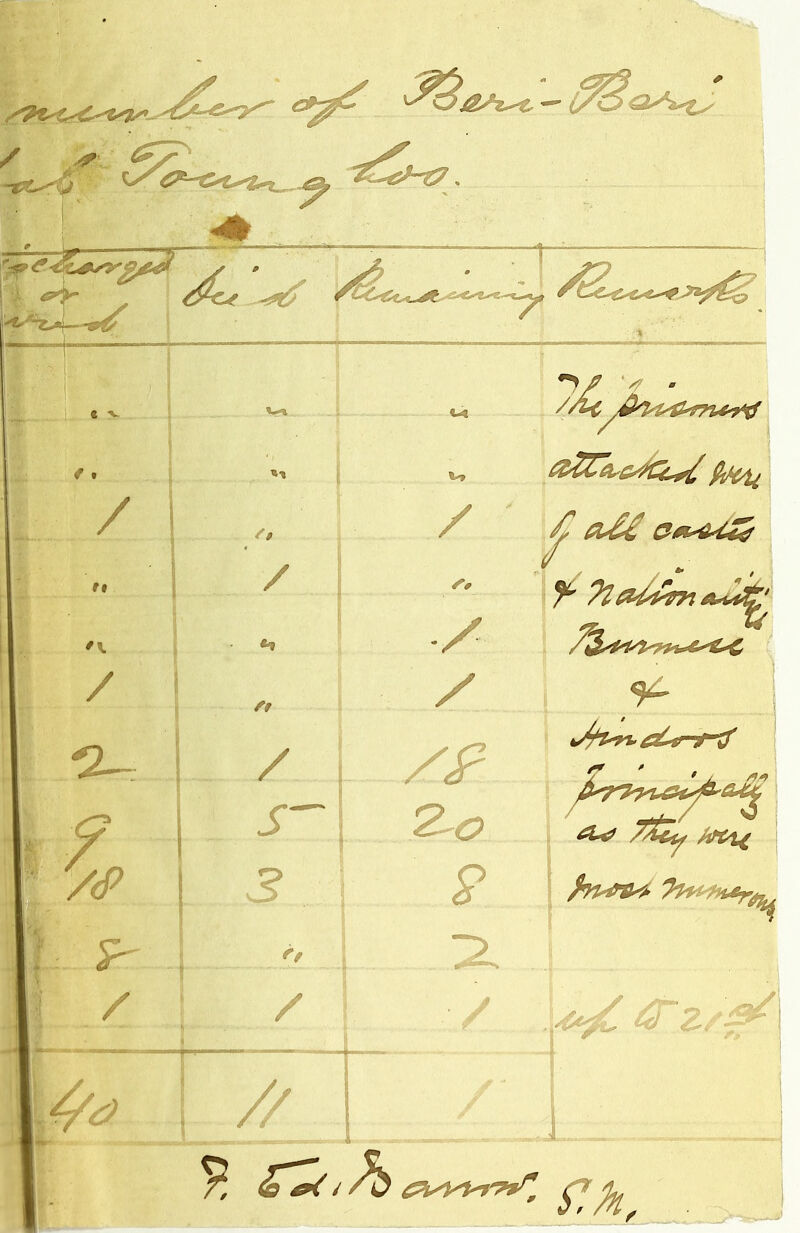 number of Beri-Beri
al Tounghoo.
scharged Died Remaining Remarks.
or
ured
" " " The prisoners
" " " attacked were
1 " 1 of all castes
" 1 " & Nationalities
" " 1 Burmese
1 " 1 &
Hindoos
2 1 18 principally
9 5 20 as they were
18 3 8 most numerous.
8 " 2
1 1 1 up to 21st
40 11 1
F. Ed. Barrow. S.M.